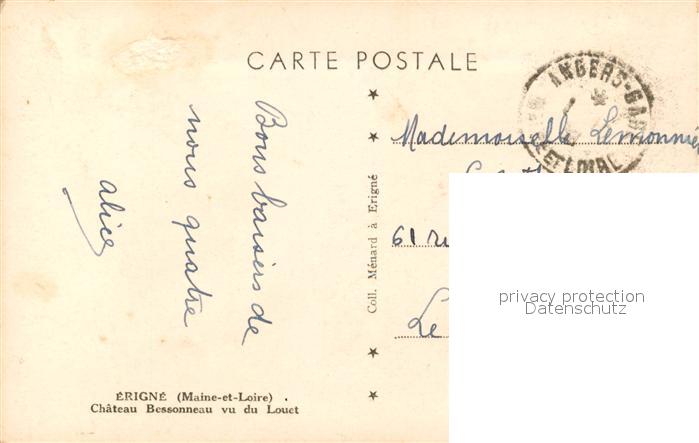 CARTE POSTALE
ANGERS-GARE
ET LOIRE
Bons baisers de
nous quatre
Alice
Coll. Ménard à Erigné
Mademoiselle Lemonnier
61
Le
privacy protection
Datenschutz
ÉRIGNÉ (Maine-et-Loire) .
Château Bessonneau vu du Louet